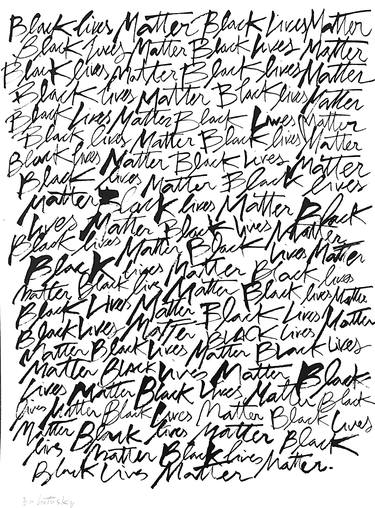 Black lives Matter Black Lives Matter
Black Lives Matter Black Lives Matter
Black lives Matter Black lives Matter
Black lives Matter Black lives Matter
Black Lives Matter Black Lives Matter
Black lives Matter Black lives Matter
Black lives Matter Black Lives Matter
Black lives Matter Black lives
Matter Black lives Matter Black
lives Matter Black Lives Matter
Black lives Matter Black Lives Matter
Black lives Matter Black lives
matter Black live Matter Black lives Matter
Black Lives Matter Black Lives Matter
Black Lives Matter Black Lives
Matter Black Lives Matter Black Lives
Matter Black Lives Matter Black
lives Matter Black Lives Matter Black
lives Matter Black Lives Matter Black Lives
Matter Black lives Matter Black
lives Matter Black lives Matter.
Black Lives Matter